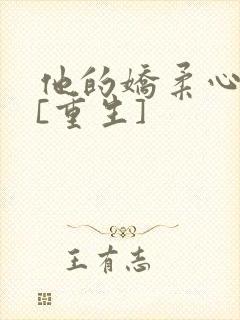 他的嬌柔心
[重生]
王有志